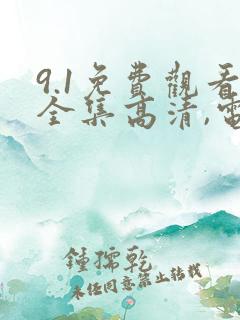 9.1免費觀看
全集高清,電
鍾孺乾
未经同意禁止转载